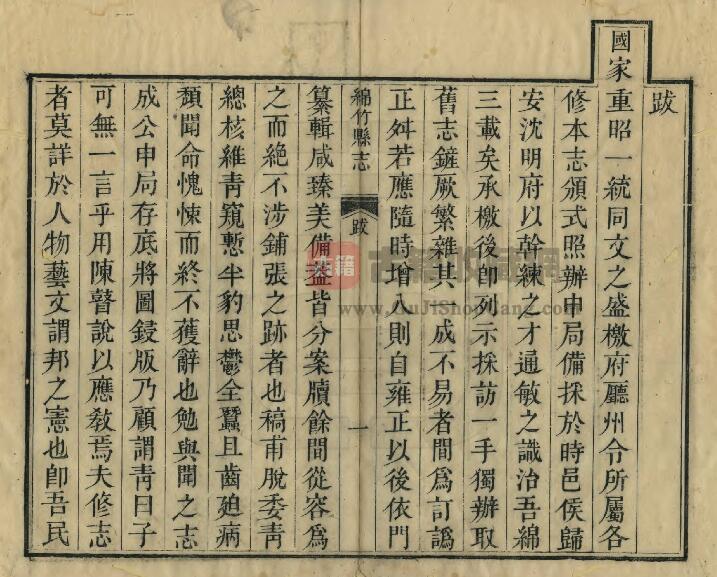 跋
國家重昭一統同文之盛檄府廳州令所屬各
修本志頒式照辦申局備採於時邑侯歸
安沈明府以幹練之才通敏之識治吾綿
三載矣承檄後卽列示採訪一手獨辦取
舊志鏟厥繁雜其一成不易者間爲訂譌
正舛若應隨時增入則自雍正以後依門
綿竹縣志 跋 一
纂輯咸臻美備蓋皆分案牘餘間從容爲
之而絶不涉鋪張之跡者也稿甫脫委靑
總核維靑窺慙半豹思鬱全蠶且齒廹病
頹聞命愧悚而終不獲辭也勉與聞之志
成公申局存底將圖鋟版乃顧謂靑曰子
可無一言乎用陳瞽說以應敎焉夫修志
者莫詳於人物藝文謂邦之憲也卽吾民
www.GuJiShouCang.com